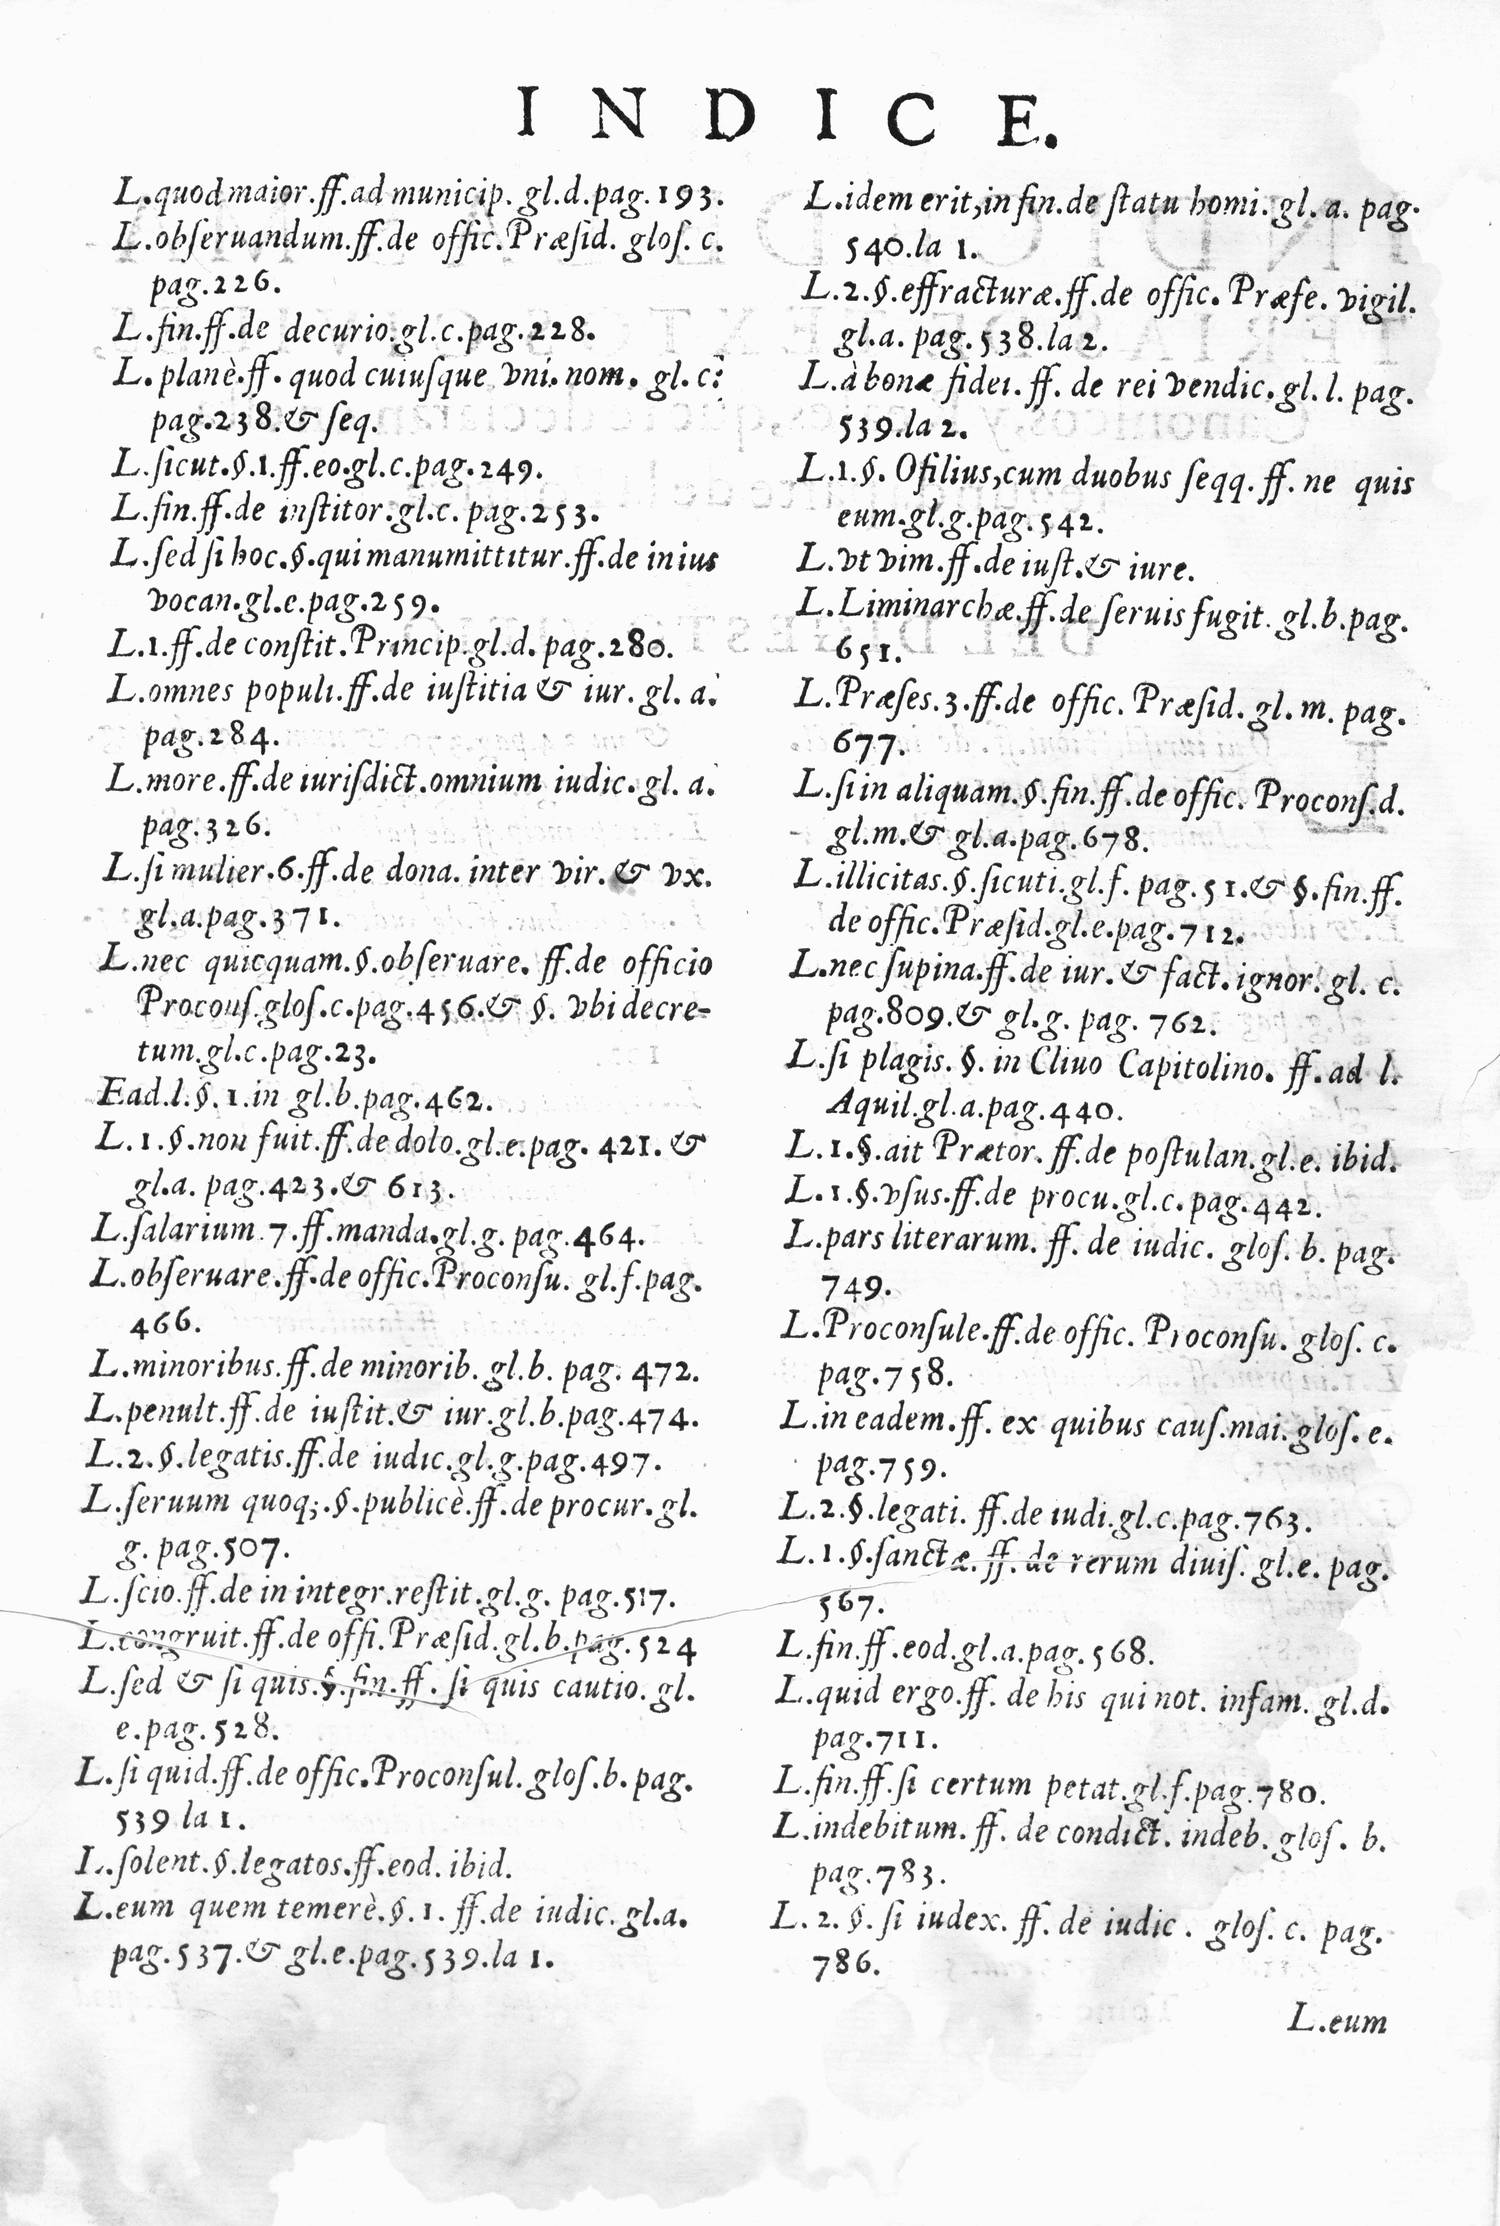 INDICE.
L.quod maior.ff.ad municip. gl.d.pag.193.
L.obſeruandum.ff.de offic.Præſid. gloſ. c.
pag.226.
L.fin.ff.de decurio.gl.c.pag.228.
L.planè.ff.quod cuiuſque vni.nom. gl. c.
pag.238.& ſeq.
L.ſicut.§.1.ff.eo.gl.c.pag.249.
L.fin.ff.de inſtitor.gl.c.pag.253.
L.ſed ſi hoc.§.qui manumittitur.ff.de in ius
vocan.gl.e.pag.259.
L.1.ff.de conſtit.Princip.gl.d.pag.280.
L.omnes populi.ff.de iuſtitia & iur. gl. a.
pag.284.
L.more.ff.de iuriſdict.omnium iudic.gl. a.
pag.326.
L.ſi mulier.6.ff.de dona. inter vir. & vx.
gl.a.pag.371.
L.nec quicquam.§.obſeruare. ff.de officio
Proconſ.gloſ.c.pag.456.& §. vbi decre-
tum.gl.c.pag.23.
Ead.l.§.1.in gl.b.pag.462.
L.1.§.non fuit.ff.de dolo.gl.e.pag. 421. &
gl.a. pag.423.& 613.
L.ſalarium.7.ff.manda.gl.g. pag.464.
L.obſeruare.ff.de offic.Proconſu. gl.f.pag.
466.
L.minoribus.ff.de minorib. gl.b. pag. 472.
L.penult.ff.de iuſtit.& iur.gl.b.pag.474.
L.2.§.legatis.ff.de iudic.gl.g.pag.497.
L.ſeruum quoq;.§.publicè.ff.de procur.gl.
g. pag.507.
L.ſcio.ff.de in integr.reſtit.gl.g. pag.517.
L.congruit.ff.de offi.Præſid.gl.b.pag.524
L.ſed & ſi quis.§.fin.ff. ſi quis cautio. gl.
e.pag.528.
L.ſi quid.ff.de offic.Proconſul. gloſ.b. pag.
539 la 1.
L.ſolent.§.legatos.ff.eod.ibid.
L.eum quem temerè.§.1. ff.de iudic. gl.a.
pag.537.& gl.e.pag.539.la 1.
L.idem erit,in fin.de ſtatu homi. gl. a. pag.
540.la 1.
L.2.§.effracturæ.ff.de offic. Præfe. vigil.
gl.a. pag.538.la 2.
L.à bonæ fidei.ff. de rei vendic.gl. l. pag.
539.la 2.
L.1.§. Ofilius,cum duobus ſeqq. ff. ne quis
eum.gl.g.pag.542.
L.vt vim.ff.de iuſt.& iure.
L.Liminarchæ.ff.de ſeruis fugit. gl.b.pag.
651.
L.Præſes.3.ff.de offic. Præſid. gl. m. pag.
677.
L.ſi in aliquam.§.fin.ff.de offic. Proconſ.d.
gl.m.& gl.a.pag.678.
L.illicitas.§.ſicuti.gl.f. pag.51.& §.fin.ff.
de offic.Præſid.gl.e.pag.712.
L.nec ſupina.ff.de iur.& fact.ignor. gl. c.
pag.809.& gl.g. pag. 762.
L.ſi plagis. §. in Cliuo Capitolino. ff. ad l.
Aquil.gl.a.pag.440.
L.1.§.ait Prætor. ff.de poſtulan.gl.e. ibid.
L.1.§.vſus.ff.de procu.gl.c.pag.442.
L.pars literarum. ff. de iudic. gloſ. b. pag.
749.
L.Proconſule.ff.de offic. Proconſu. gloſ. c.
pag.758.
L.in eadem.ff. ex quibus cauſ.mai.gloſ. e.
pag.759.
L.2.§.legati. ff.de iudi.gl.c.pag.763.
L.1.§.ſanctæ.ff. de rerum diuiſ. gl.e. pag.
567.
L.fin.ff.eod.gl.a.pag.568.
L.quid ergo.ff. de his qui not. infam. gl.d.
pag.711.
L.fin.ff.ſi certum petat.gl.f.pag.780.
L.indebitum. ff. de condict. indeb. gloſ. b.
pag.783.
L. 2. §. ſi iudex. ff. de iudic. gloſ. c. pag.
786.
L.eum